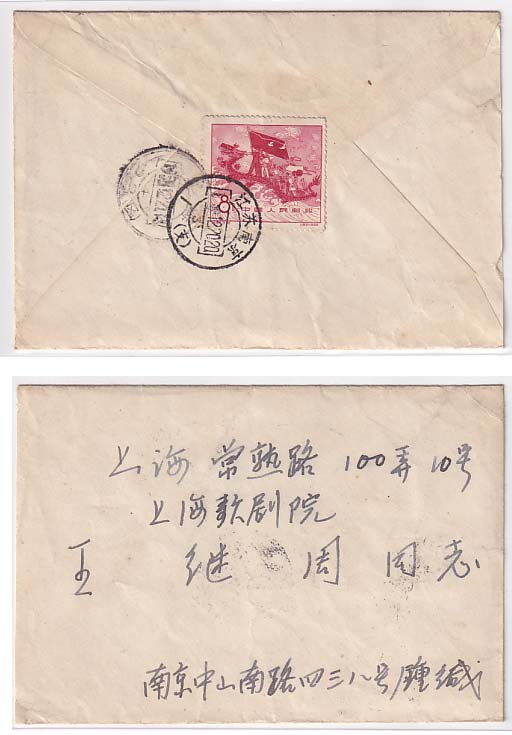 8
中国人民邮政
江苏南京
上海 常熟路 100弄 10号
上海歌剧院
王 继 周 同志
南京中山南路四三八号 缄